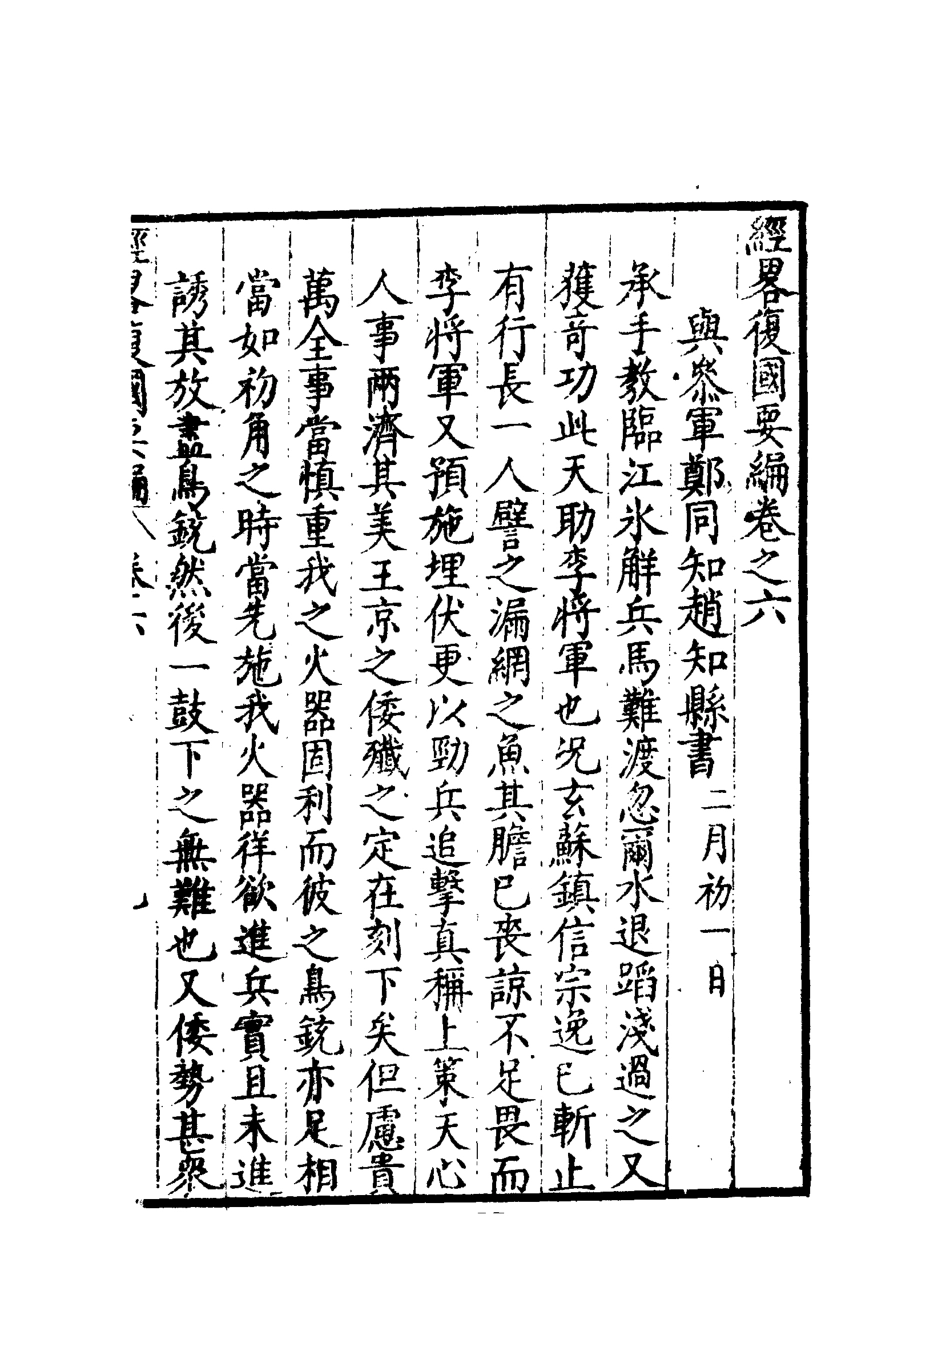 經畧復國要編卷之六
與叅軍鄭同知趙知縣書 二月初一日
承手教臨江氷解兵馬難渡忽爾水退蹈淺過之又
獲竒功此天助李將軍也况玄蘇鎮信宗逸已斬止
有行長一人譬之漏網之魚其膽已喪諒不足畏而
李將軍又預施埋伏更以勁兵追擊真稱上策天心
人事兩濟其美王京之倭殱之定在刻下矣但慮貴
萬全事當慎重我之火器固利而彼之鳥銃亦足相
當如初角之時當先施我火器徉欲進兵實且未進
誘其放盡鳥銃然後一鼓下之無難也又倭勢甚衆
經畧復國要編 卷六